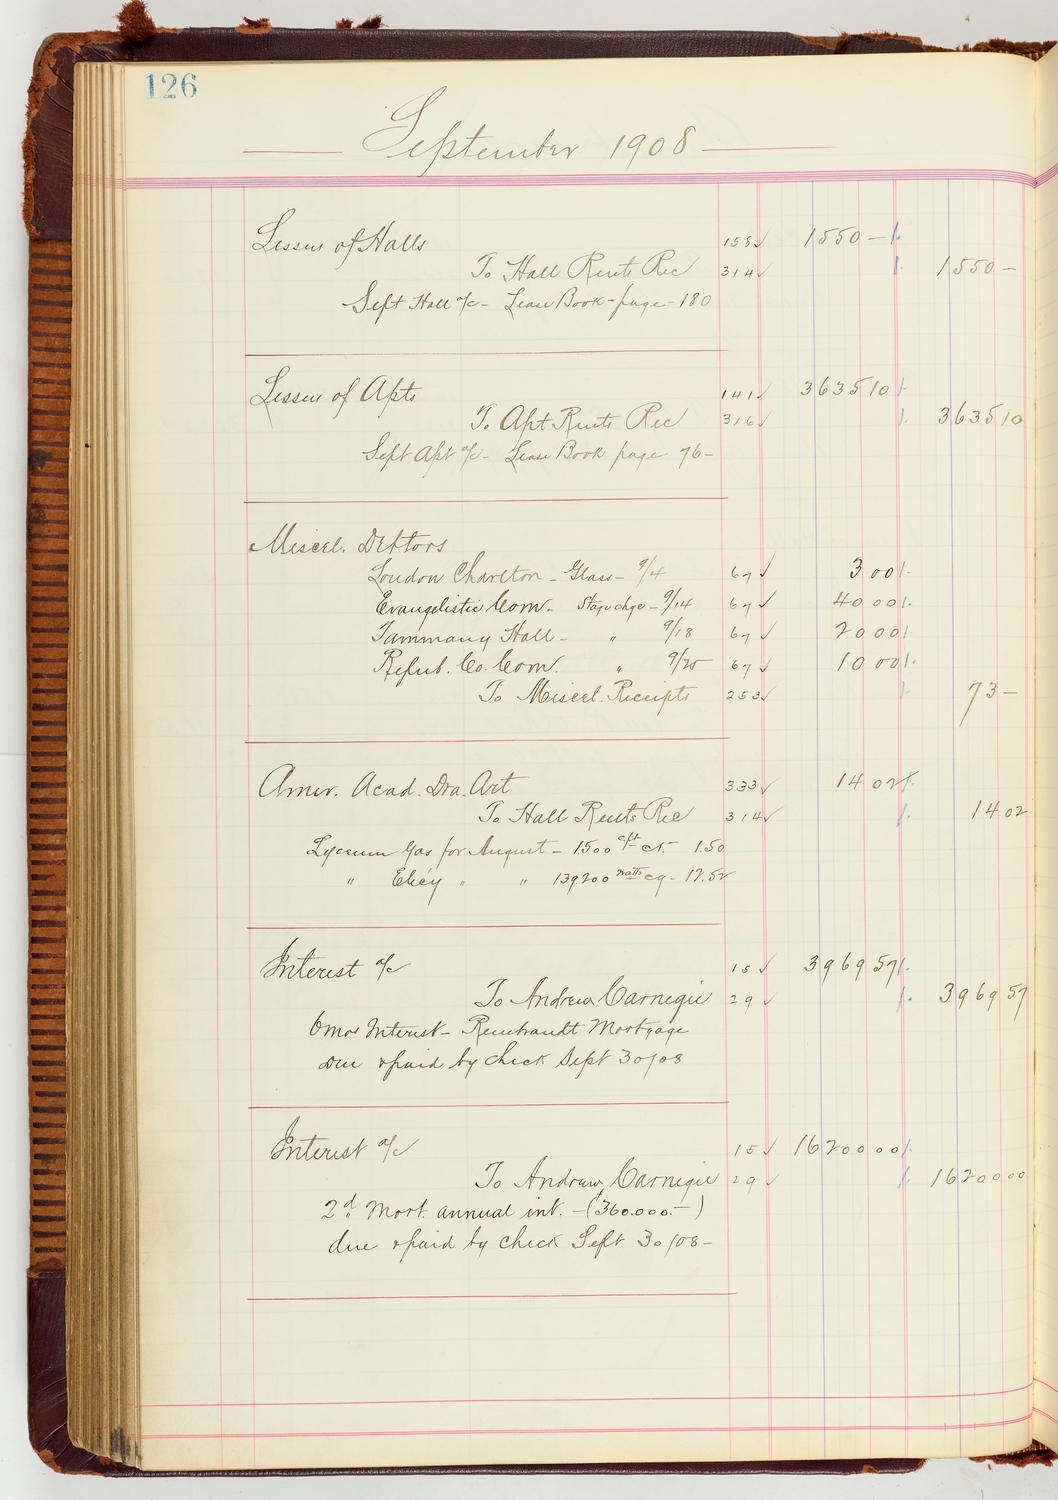 126
September 1908
Lessees of Halls 158 ✓ 1550 —
To Hall Rents Rec 314 ✓ 1550 —
Sept Hall a/c - Lease Book - page - 180
Lessees of Apts 141 ✓ 3635 10
To Apt Rents Rec 316 ✓ 3635 10
Sept Apt a/c - Lease Book page 76 -
Miscel. Debtors
Loudon Charlton - Glass - 9/4 67 ✓ 3 00
Evangelistic Com. - Stage chge - 9/14 67 ✓ 40 00
Tammany Hall - " 9/18 67 ✓ 20 00
Repub. Co. Com. " 9/25 67 ✓ 10 00
To Miscel. Receipts 253 ✓ 73 —
Amer. Acad. Dra. Art 333 ✓ 14 02
To Hall Rents Rec 314 ✓ 14 02
Lyceum Gas for August - 1500 cft - 1.50
" Elec'y " " 139.200 watts - 12.52
Interest a/c 15 ✓ 3969 57
To Andrew Carnegie 29 ✓ 3969 57
6 mos Interest - Rembrandt Mortgage
due & paid by check Sept 30/08
Interest a/c 15 ✓ 16200 00
To Andrew Carnegie 29 ✓ 16200 00
2d Mort. annual int. - (360.000.-)
due & paid by check Sept 30/08 -